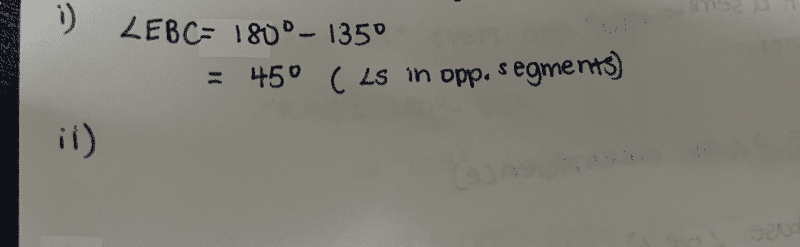 i) ∠EBC = 180° - 135°
= 45° (∠s in opp. segments)
ii)